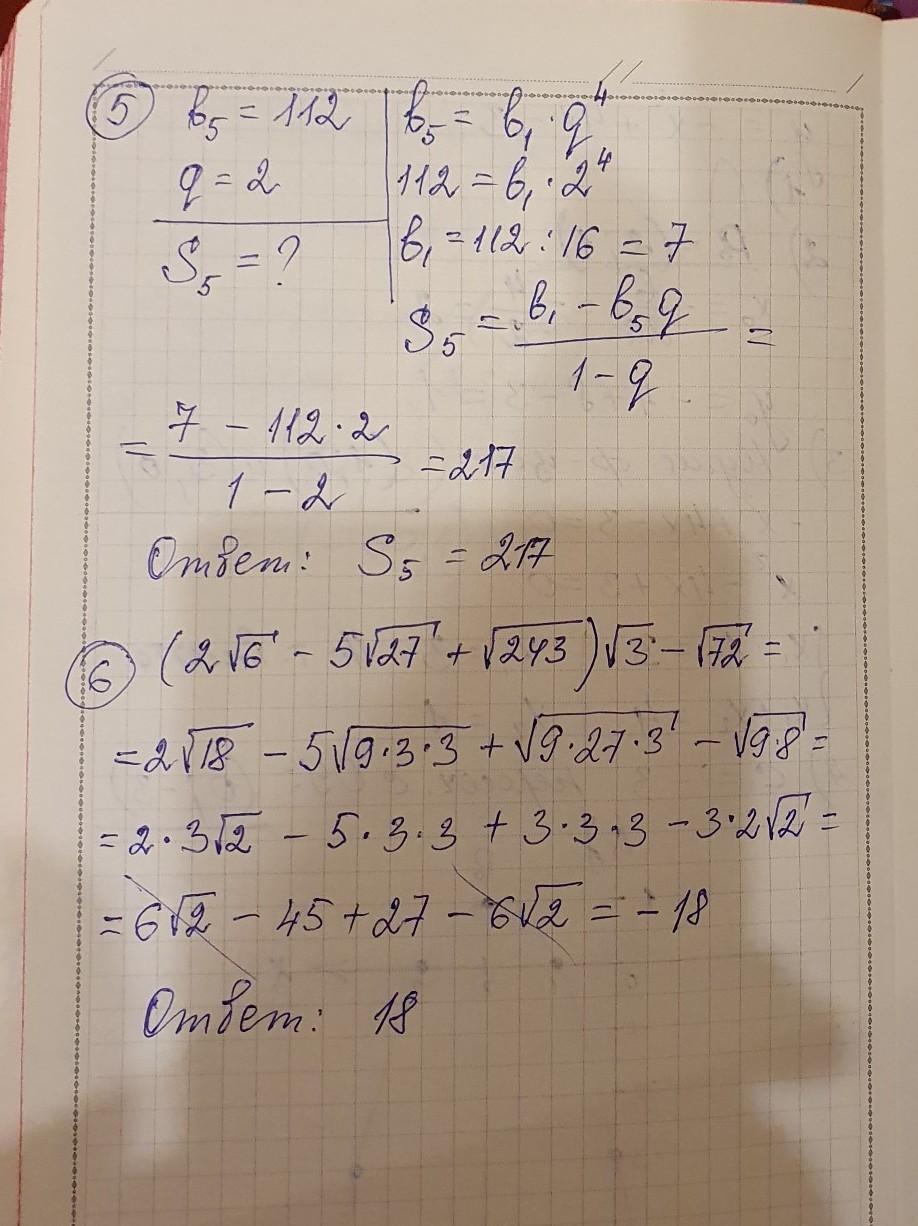 5 в₅ = 112 в₅ = в₁ · q⁴
q = 2 112 = в₁ · 2⁴
S₅ = ? в₁ = 112 : 16 = 7
S₅ = (в₁ − в₅q)/(1 − q) =
= (7 − 112 · 2)/(1 − 2) = 217
Ответ: S₅ = 217
6 (2√6 − 5√27 + √243)√3 − √72 =
= 2√18 − 5√(9·3·3) + √(9·27·3) − √(9·8) =
= 2·3√2 − 5·3·3 + 3·3·3 − 3·2√2 =
= 6√2 − 45 + 27 − 6√2 = −18
Ответ: 18